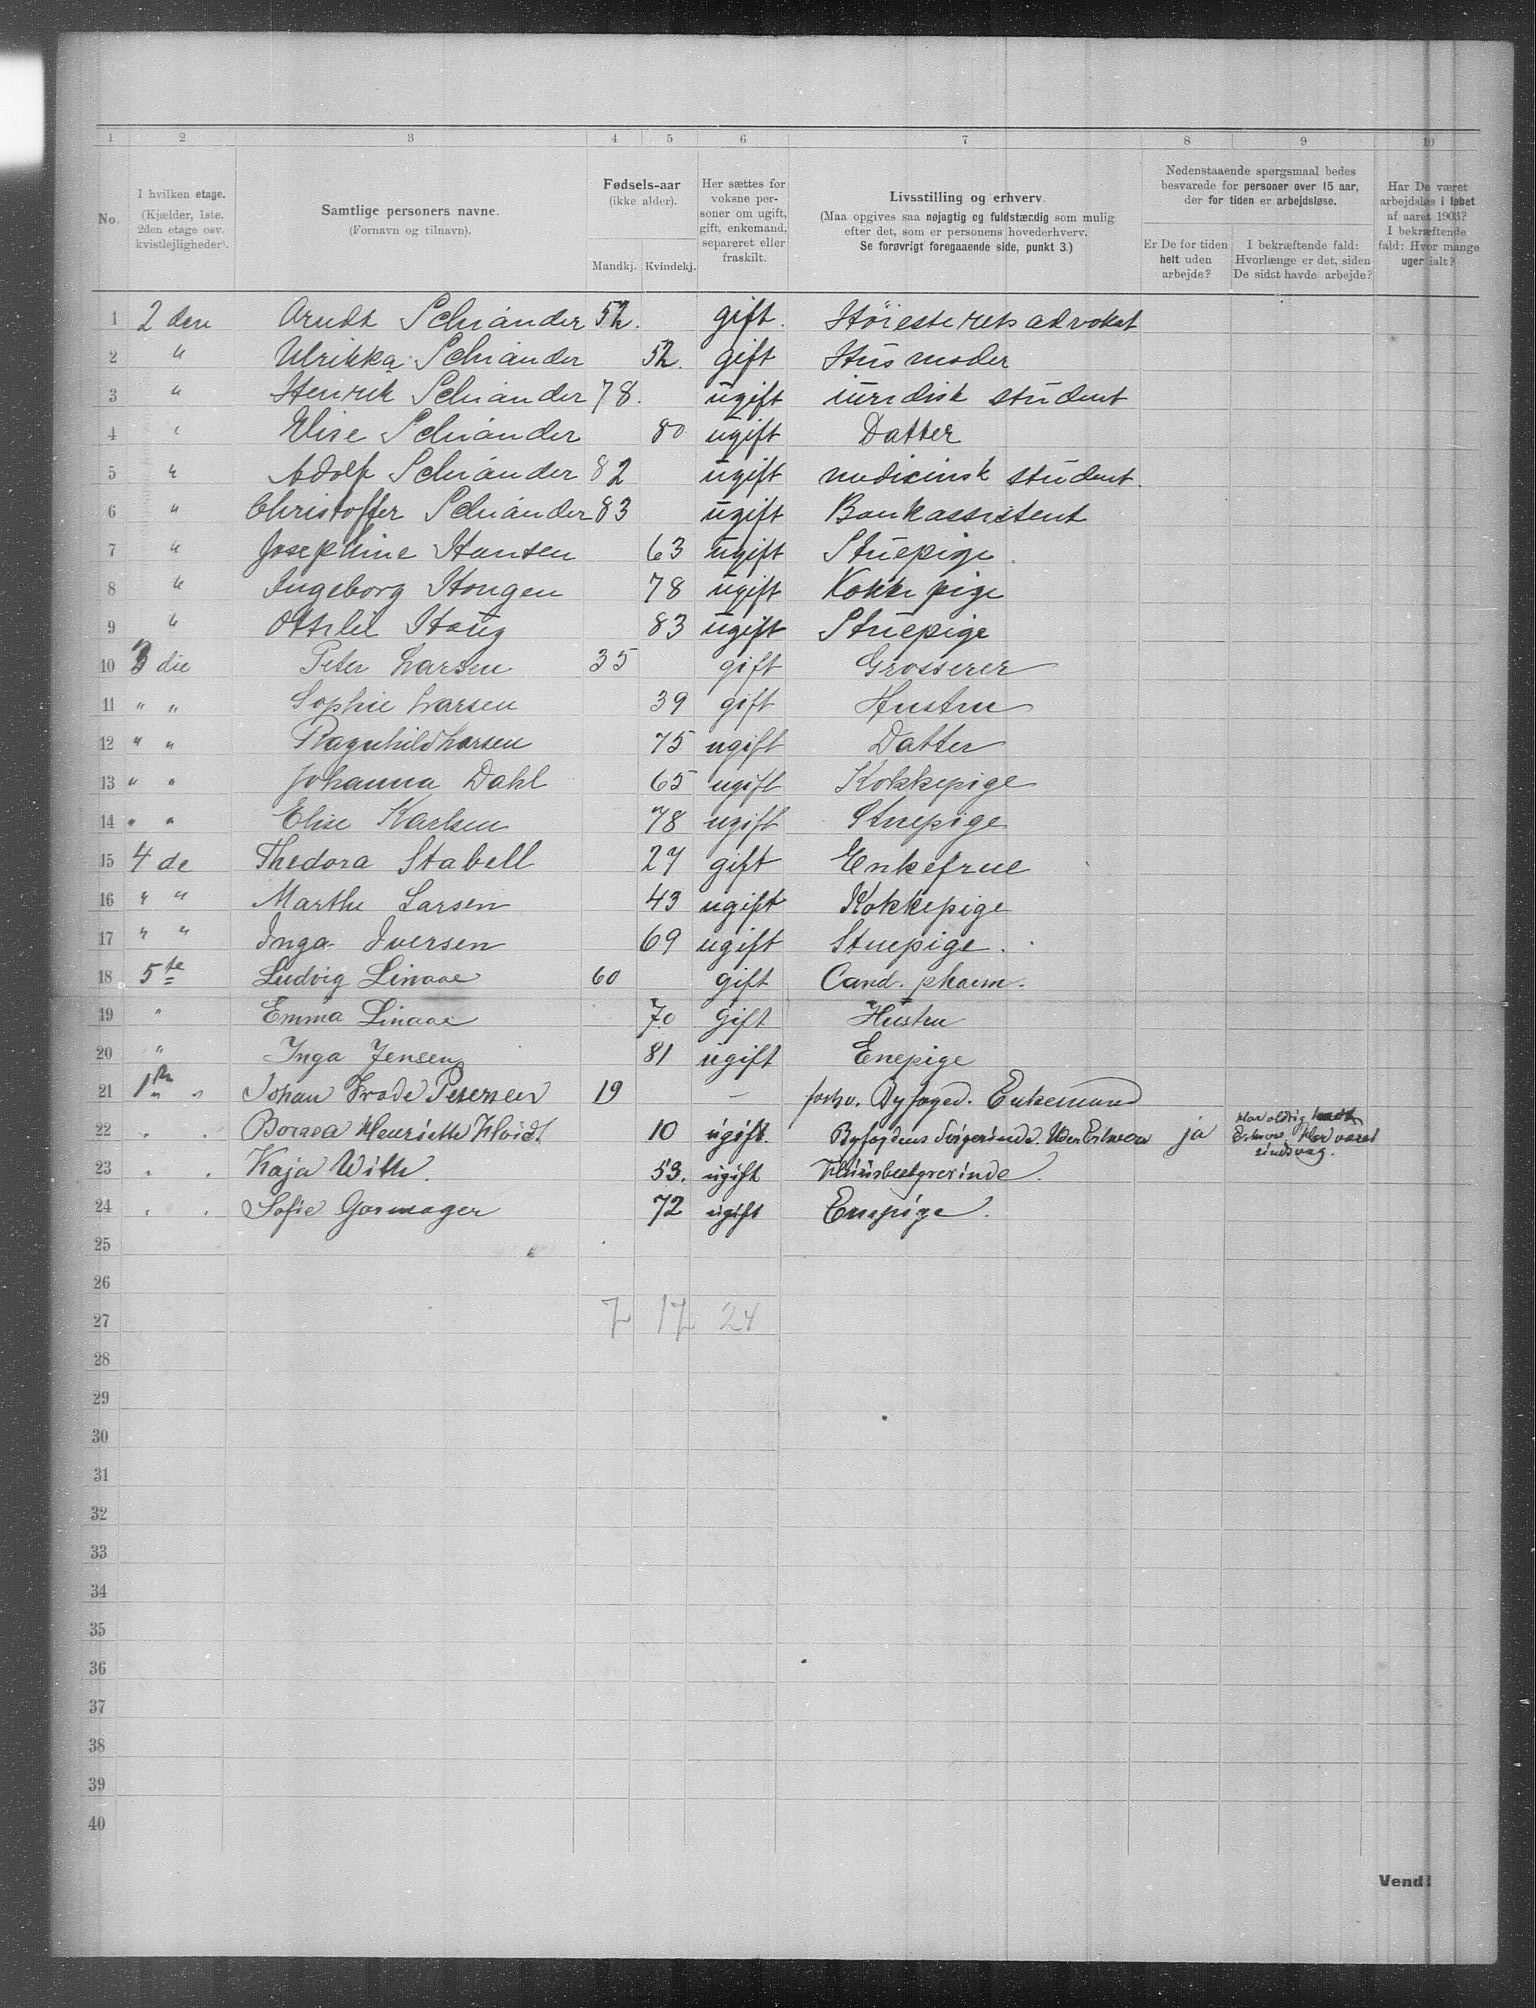 1 2 3 4 5 6 7 8 9 10
No.
I hvilken etage.
(Kjælder, 1ste,
2den etage osv.
kvistlejligheder).
Samtlige personers navne.
(Fornavn og tilnavn).
Fødsels-aar
(ikke alder).
Mandkj. Kvindekj.
Her sættes for
voksne per-
soner om ugift,
gift, enkemand,
separeret eller
fraskilt.
Livsstilling og erhverv.
(Maa opgives saa nøjagtig og fuldstændig som mulig
efter det, som er personens hovederhverv.
Se forøvrigt foregaaende side, punkt 3.)
Nedenstaaende spørgsmaal bedes
besvarede for personer over 15 aar,
der for tiden er arbejdsløse.
Er De for tiden
helt uden
arbejde?
I bekræftende fald:
Hvorlænge er det, siden
De sidst havde arbejde?
Har De været
arbejdsløs i løbet
af aaret 1903?
I bekræftende
fald: Hvor mange
uger ialt?
1 2 den Arndt Schiander 52. gift. Høiesteretsadvokat
2 " Ulrikka Schiander 52. gift Husmoder
3 " Henrik Schiander 78. ugift juridisk student
4 " Elise Schiander 80 ugift Datter
5 " Adolf Schiander 82 ugift medicinsk student.
6 " Christoffer Schiander 83 ugift Bankassistent
7 " Josephine Hansen 63 ugift Stuepige.
8 " Ingeborg Hongen 78 ugift Kokkepige
9 " Ottilie Haug 83 ugift Stuepige
10 3 die Peter Larsen 35 gift Grosserer
11 " " Sophie Larsen 39 gift Hustru
12 " " Ragnhild Larsen 75 ugift Datter
13 " " Johanna Dahl 65 ugift Kokkepige
14 " " Elise Karlsen 78 ugift Stuepige
15 4 de Thedora Stabell 27 gift Enkefrue
16 " " Marthe Larsen 43 ugift Kokkepige
17 " " Inga Iversen 69 ugift Stuepige.
18 5te Ludvig Linaae 60 gift Cand. pharm.
19 " Emma Linaae 70 gift Hustru
20 " Inga Jensen 81 ugift Enepige
21 1ste " Johan Frode Petersen 19 – forhv. Byfoged. Enkemand
22 " " Henriette 10 ugift. Byfogdens Svigerinde. Uden Erhverv ja Har aldrig havt
Erhverv. Har været
23 " " Kaja With. 53. ugift Husbestyrerinde.
24 " " Sofie Garmager 72 ugift Enepige.
25
26
27 7 17 24
28
29
30
31
32
33
34
35
36
37
38
39
40
Vend!